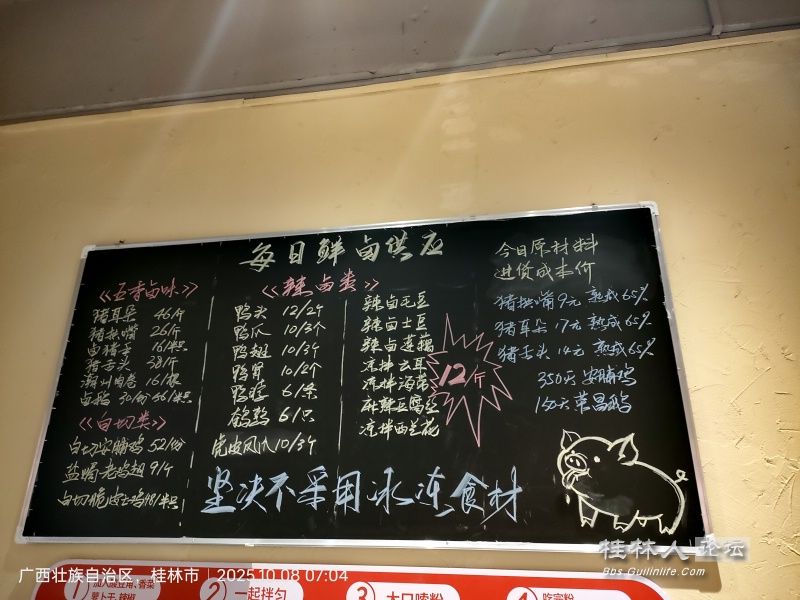 每日鲜卤供应
<<五香卤味>>
猪耳朵 46/斤
猪拱嘴 26/斤
卤猪手 16/半只
猪舌头 38/斤
潮州肉卷 16/根
卤鹅 30/份 66/半只
<<白切类>>
白切安脯鸡 52/份
盐焗老鸡翅 9/个
白切脆皮土鸡 48/半只
<<辣卤类>>
鸭头 12/2个
鸭爪 10/3个
鸭翅 10/3个
鸭胃 10/2个
鸭脖 6/条
鹌鹑 6/只
虎皮凤爪 10/3个
辣卤毛豆
辣卤土豆
辣卤莲藕
凉拌云耳
凉拌海带
麻辣豆腐皮
凉拌西兰花
12/斤
今日原材料
进货成本价
猪拱嘴 9元 熟成65%
猪耳朵 17元 熟成65%
猪舌头 14元 熟成65%
350天 安脯鸡
150天 荣昌鹅
坚决不采用冰冻食材
桂林人论坛
Bbs.Guilinlife.Com
广西壮族自治区，桂林市 | 2025.10.08 07:04
1 加入酸豆角、香菜
萝卜干、辣椒
2 一起拌匀
3 大口嗦粉
4 吃完粉